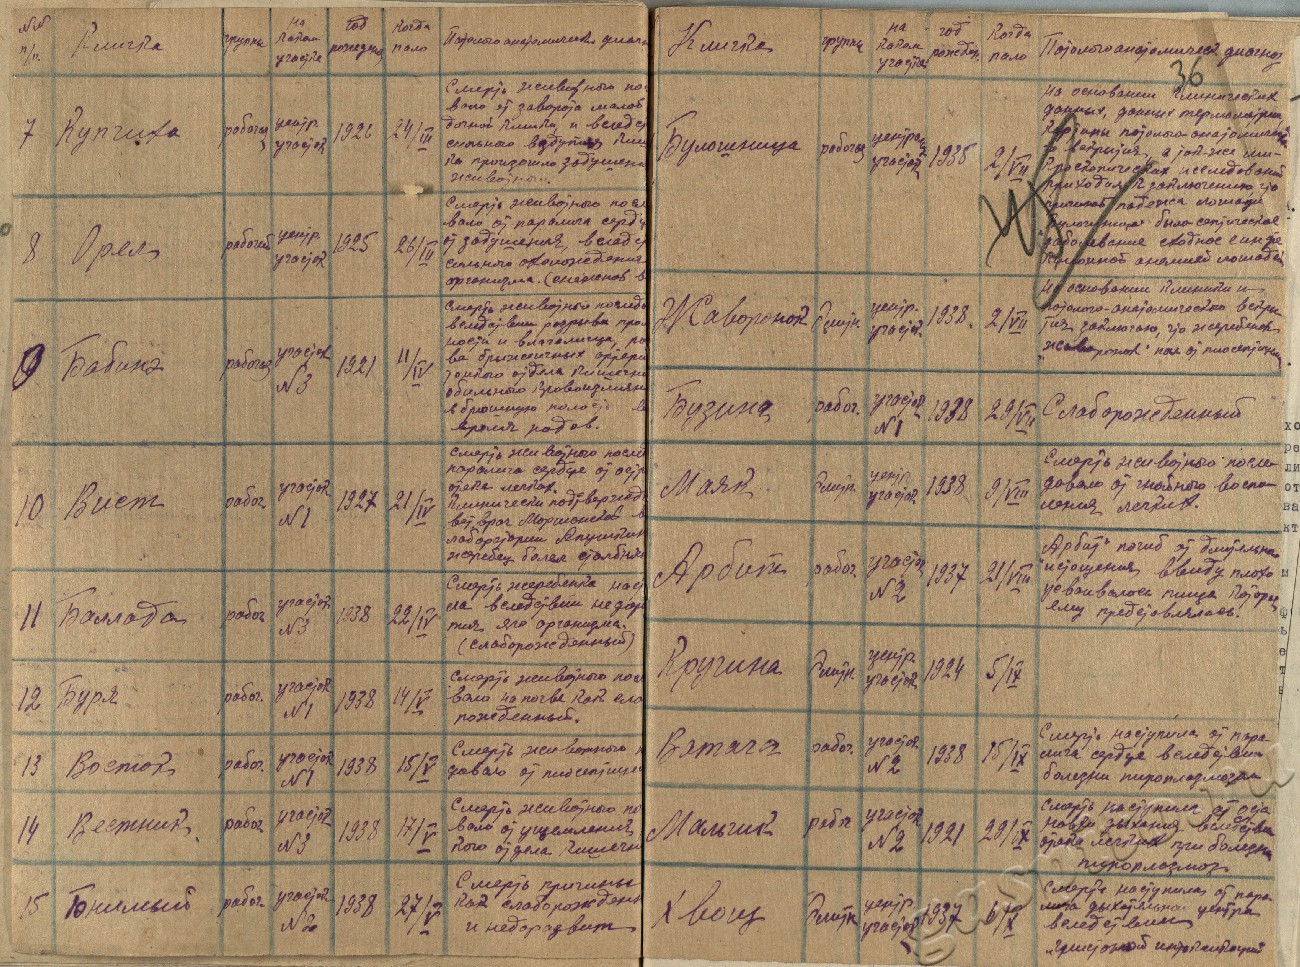 №№ п/п. Кличка группа на каком участке год рождения Когда пало Патолого-анатомический диагноз
7 Купчиха рабочая центр. участок 1926 24/III
Смерть животного
вало от заворота
и вследст
сильного вздутия
ка произошло задушение
животного.
8 Орел рабочий центр. участок 1925 26/III
Смерть животного посл
вало от паралича сердц
от задушения, вследст
сильного охлаждения
организма.
9 Бабина рабочая участок №3 1921 11/IV
Смерть животного последо
вследствии разрыва
ности и влагалища,
ва брыжеечных артери
тонкого отдела кишечни
обильного кровоизлияни
в брюшную полость
время родов.
10 Вист рабоч. участок №1 1927 21/IV
Смерть животного после
паралича сердца от
отека легких.
Клинически подтвержд
вет врач
лаборатории
жеребец болел
11 Баллада рабоч участок №3 1938 22/IV
Смерть жеребенка нас
ла вследствии недораз
тия его организма.
(слаборожденный)
12 Буря рабоч. участок №1 1938 14/V
Смерть животного посл
вало на почве как сла
рожденный.
13 Восток рабоч. участок №1 1938 15/V
Смерть животного п
довало от
14 Вестник рабоч участок №3 1938 17/V
Смерть животного по
вало от ущемления
кого отдела кишечни
15 рабоч участок №2 1938 27/V
Смерть причины
как слаборожден
и недоразвит
36
Кличка группа на каком участке год рожден. Когда пало Патолого-анатомическ диагноз
Булочница рабочая централ участок 1935 2/VII
На основании клинических
данных, данных термометрии
картины патолого-анатомическо
го вскрытия, а так-же ми-
кроскопических исследований
приходим к заключению что
причиной падежа лошади
"Булочница" было септическое
заболевание сходное с инфе
кционной анемией лошадей
Жаворонок элитн. центр. участок 1938. 2/VII
На основании клиники и
патолого-анатомического вскры
тия заключаю, что жеребенок
"Жаворонок" пал от
Бузина рабоч. участок №1 1938 29/VII Слаборожденный
Маяк элитн. центр участок 1938 9/VIII
Смерть животного после-
довало от гнойного воспа-
ления легких.
Арбит рабоч. участок №2 1937 21/VIII
"Арбит" погиб от
истощения ввиду плохо
усваивалось пища которая
ему предоставлялась.
Кручина элитн. центр. участок 1924 5/IX
рабоч. участок №2 1938 15/IX
Смерть наступила от пара-
лича сердца вследствии
болезни пироплазмоза
Мальчик рабоч участок №2 1921 29/IX
Смерть наступила от оста
новки дыхания вследствие
отека легких при болезни
пироплазмоз
Хвощ элитн центр. участок 1937 6/X
Смерть наступила от пара
лича дыхательного центра
вследствии